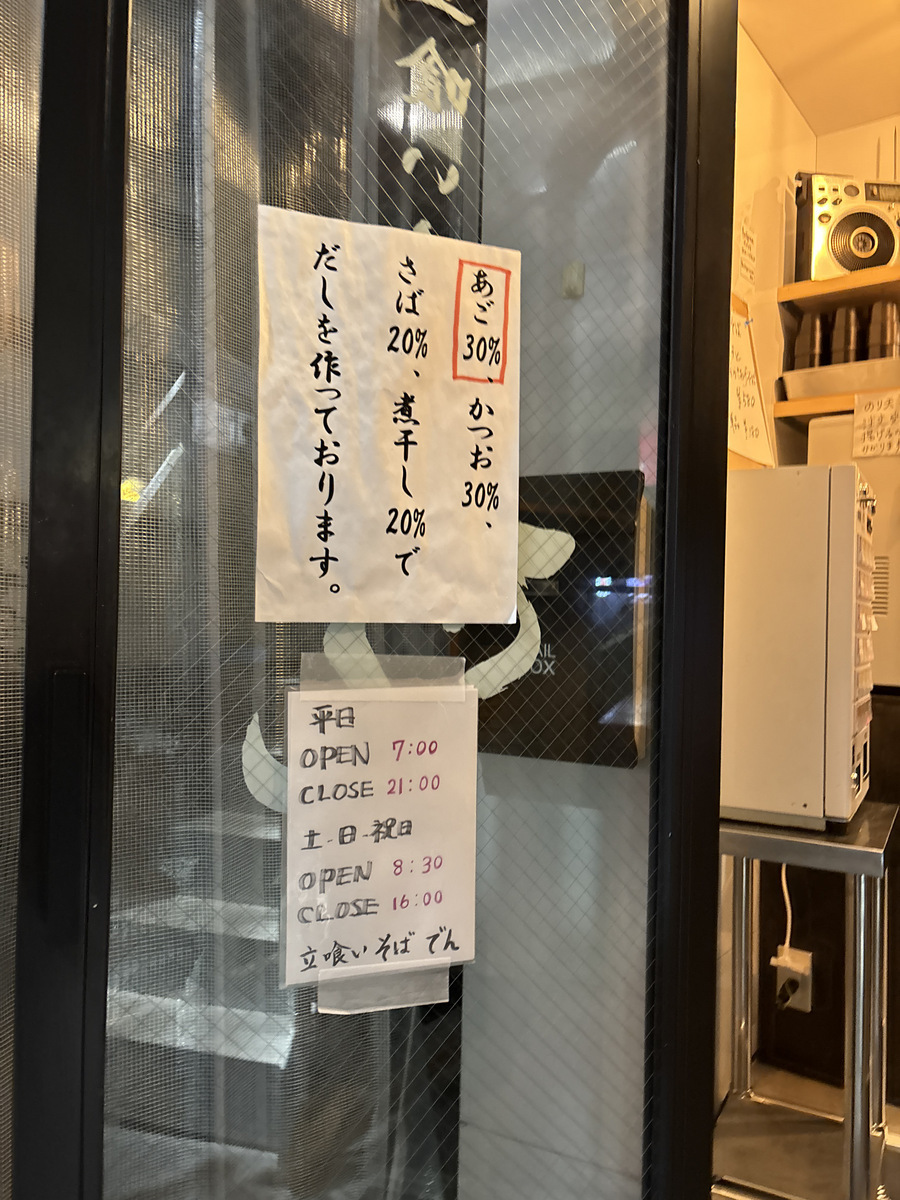 喰い
あご30%、かつお30%、
さば20%、煮干し20%で
だしを作っております。
平日
OPEN 7:00
CLOSE 21:00
土-日-祝日
OPEN 8:30
CLOSE 16:00
立喰いそば でん
AIL
OX
¥580
のり天